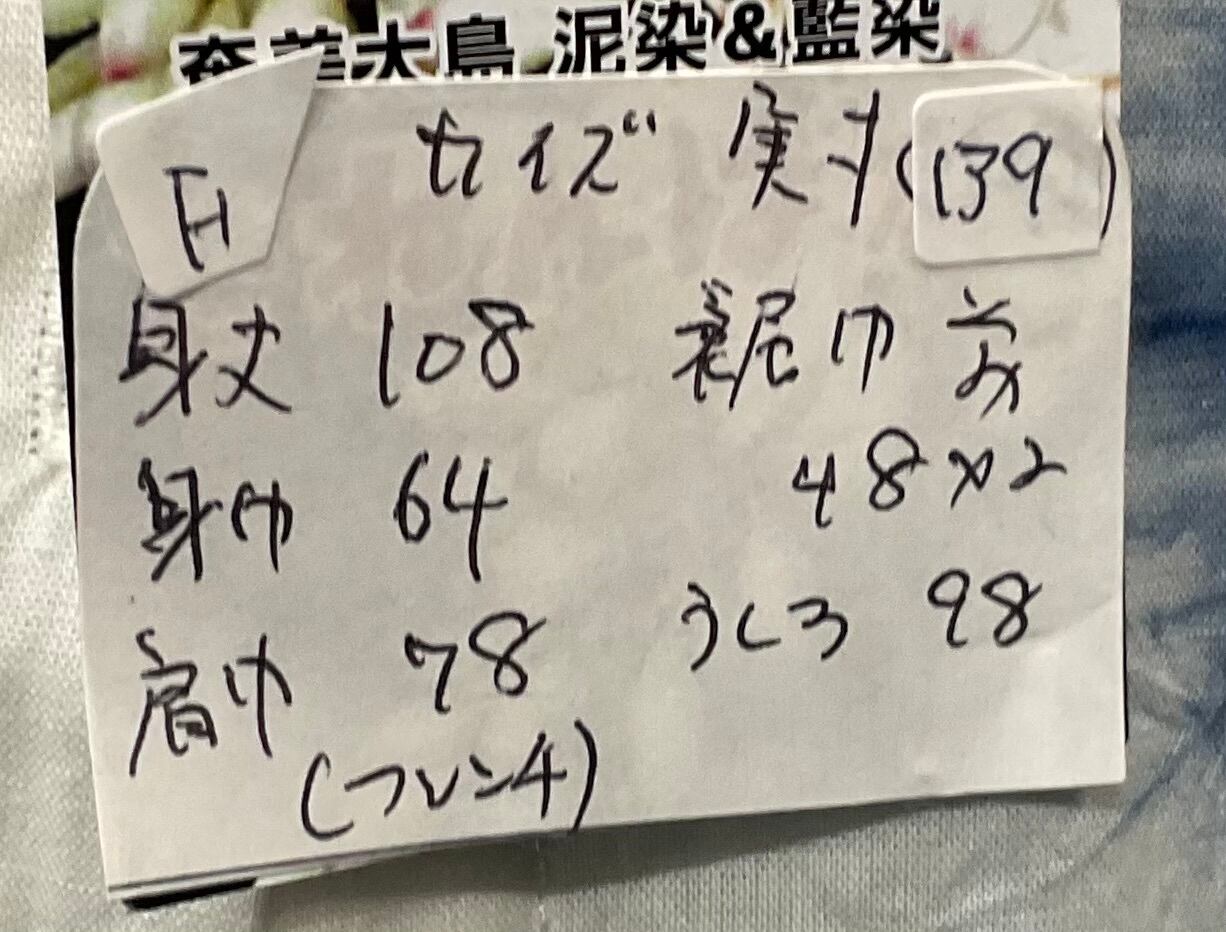 奄美大島 泥染&藍染
日
サイズ 実寸(139)
身丈 108
身巾 64
肩巾 78
(フレンチ)
裾巾 前
48×2
うしろ 98